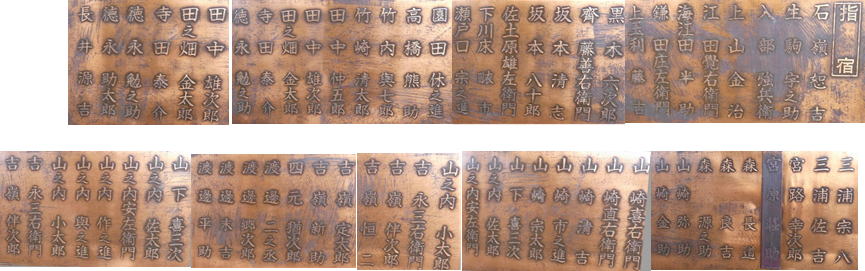 指宿
石嶺恕吉
生駒宇之助
入部強兵衛
上山金治
江田覺右衛門
海江田半助
鎌田庄左衛門
上玉利藤吉
黒木六次郎
齊藤善右衛門
坂本清志
坂本八十郎
佐土原雄左衛門
下川床畩市
瀬戸口宗之進
園田休之進
高橋熊助
竹内與七郎
竹崎清太郎
田中仲五郎
田中雄次郎
田之畑金太郎
寺田泰介
德永勉之助
田中雄次郎
田之畑金太郎
寺田泰介
德永勉之助
德永助太郎
長井源吉
三浦宗八
三浦佐吉
宮路幸次郎
宮原軽助
森長道
森良吉
森源助
山崎弥助
山崎金助
山崎喜右衛門
山崎直右衛門
山崎清吉
山崎市之進
山崎宗太郎
山下喜三次
山之内佐太郎
山之内安左衛門
山之内小太郎
吉永三右衛門
吉嶺伴次郎
吉嶺恒二
吉嶺定太郎
吉嶺新助
四元猶次郎
渡邊二之丞
渡邊郷次郎
渡邊末吉
渡邊平助
山下喜三次
山之内佐太郎
山之内安左衛門
山之内作之進
山之内與之進
山之内小太郎
吉永三右衛門
吉嶺伴次郎